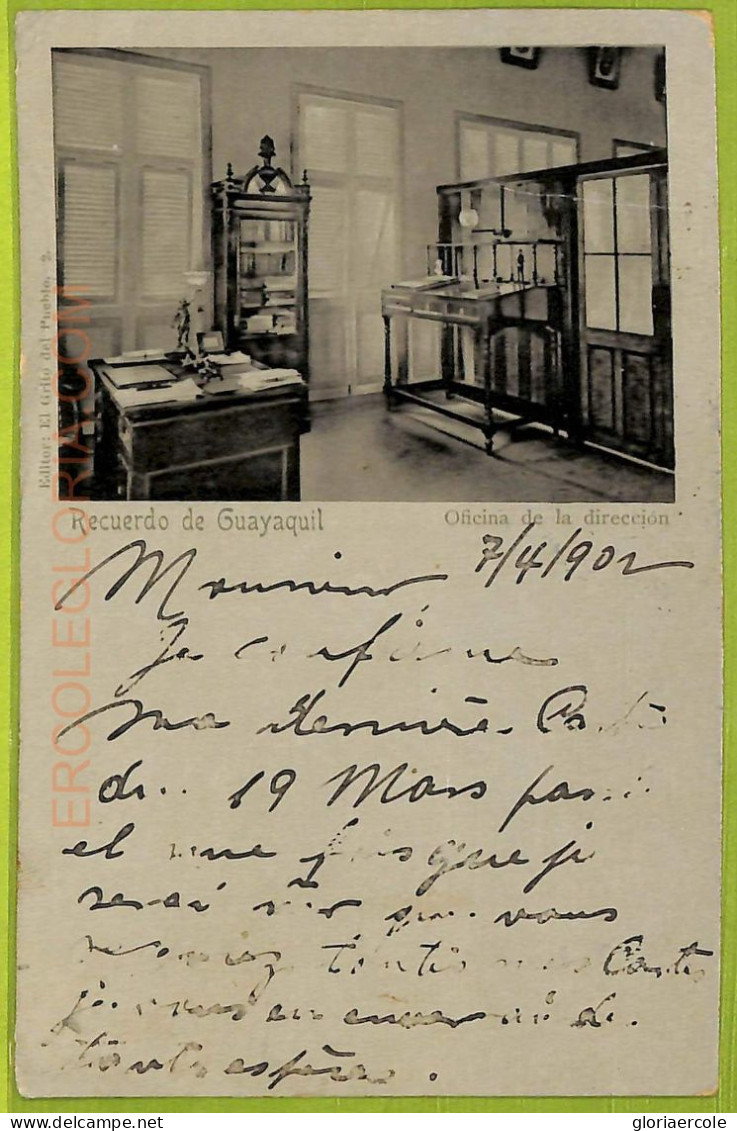 Editor: El Grito del Pueblo, 2.
ERCOLEGLORIA.COM
Recuerdo de Guayaquil
Oficina de la dirección
7/4/902
Monsieur
Je confirme
ma dernière Carte
du 19 Mars
et une fois que je
serai que vous
toutes mes Cartes
je vous en enverrai de
toute espèce.
gloriaercole